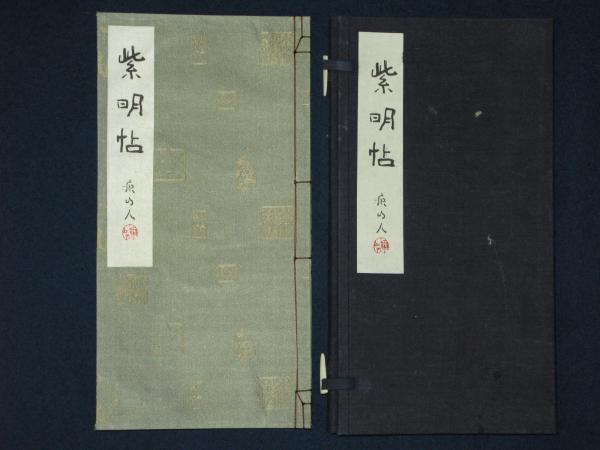 紫明帖
疾山人
紫明帖
疾山人